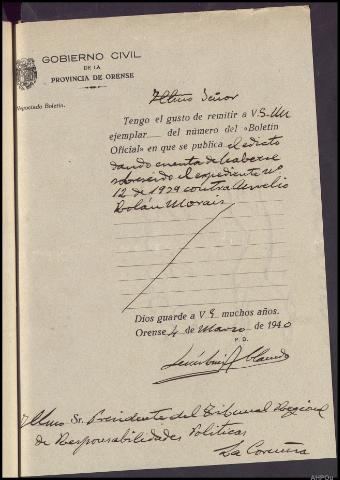 GOBIERNO CIVIL
DE LA
PROVINCIA DE ORENSE
Negociado Boletin.
Iltmo Señor
Tengo el gusto de remitir a V.S. Un
ejemplar del número del «Boletin
Oficial» en que se publica el edicto
dando cuenta de haberse
sobreseido el expediente nº
12 de 1939 contra Aurelio
Bolán Morais
Dios guarde a V S muchos años.
Orense 4 de Marzo de 1940
P. D.
Iltmo Sr. Presidente del Tribunal Regional
de Responsabilidades Politicas
La Coruña
AHPOu